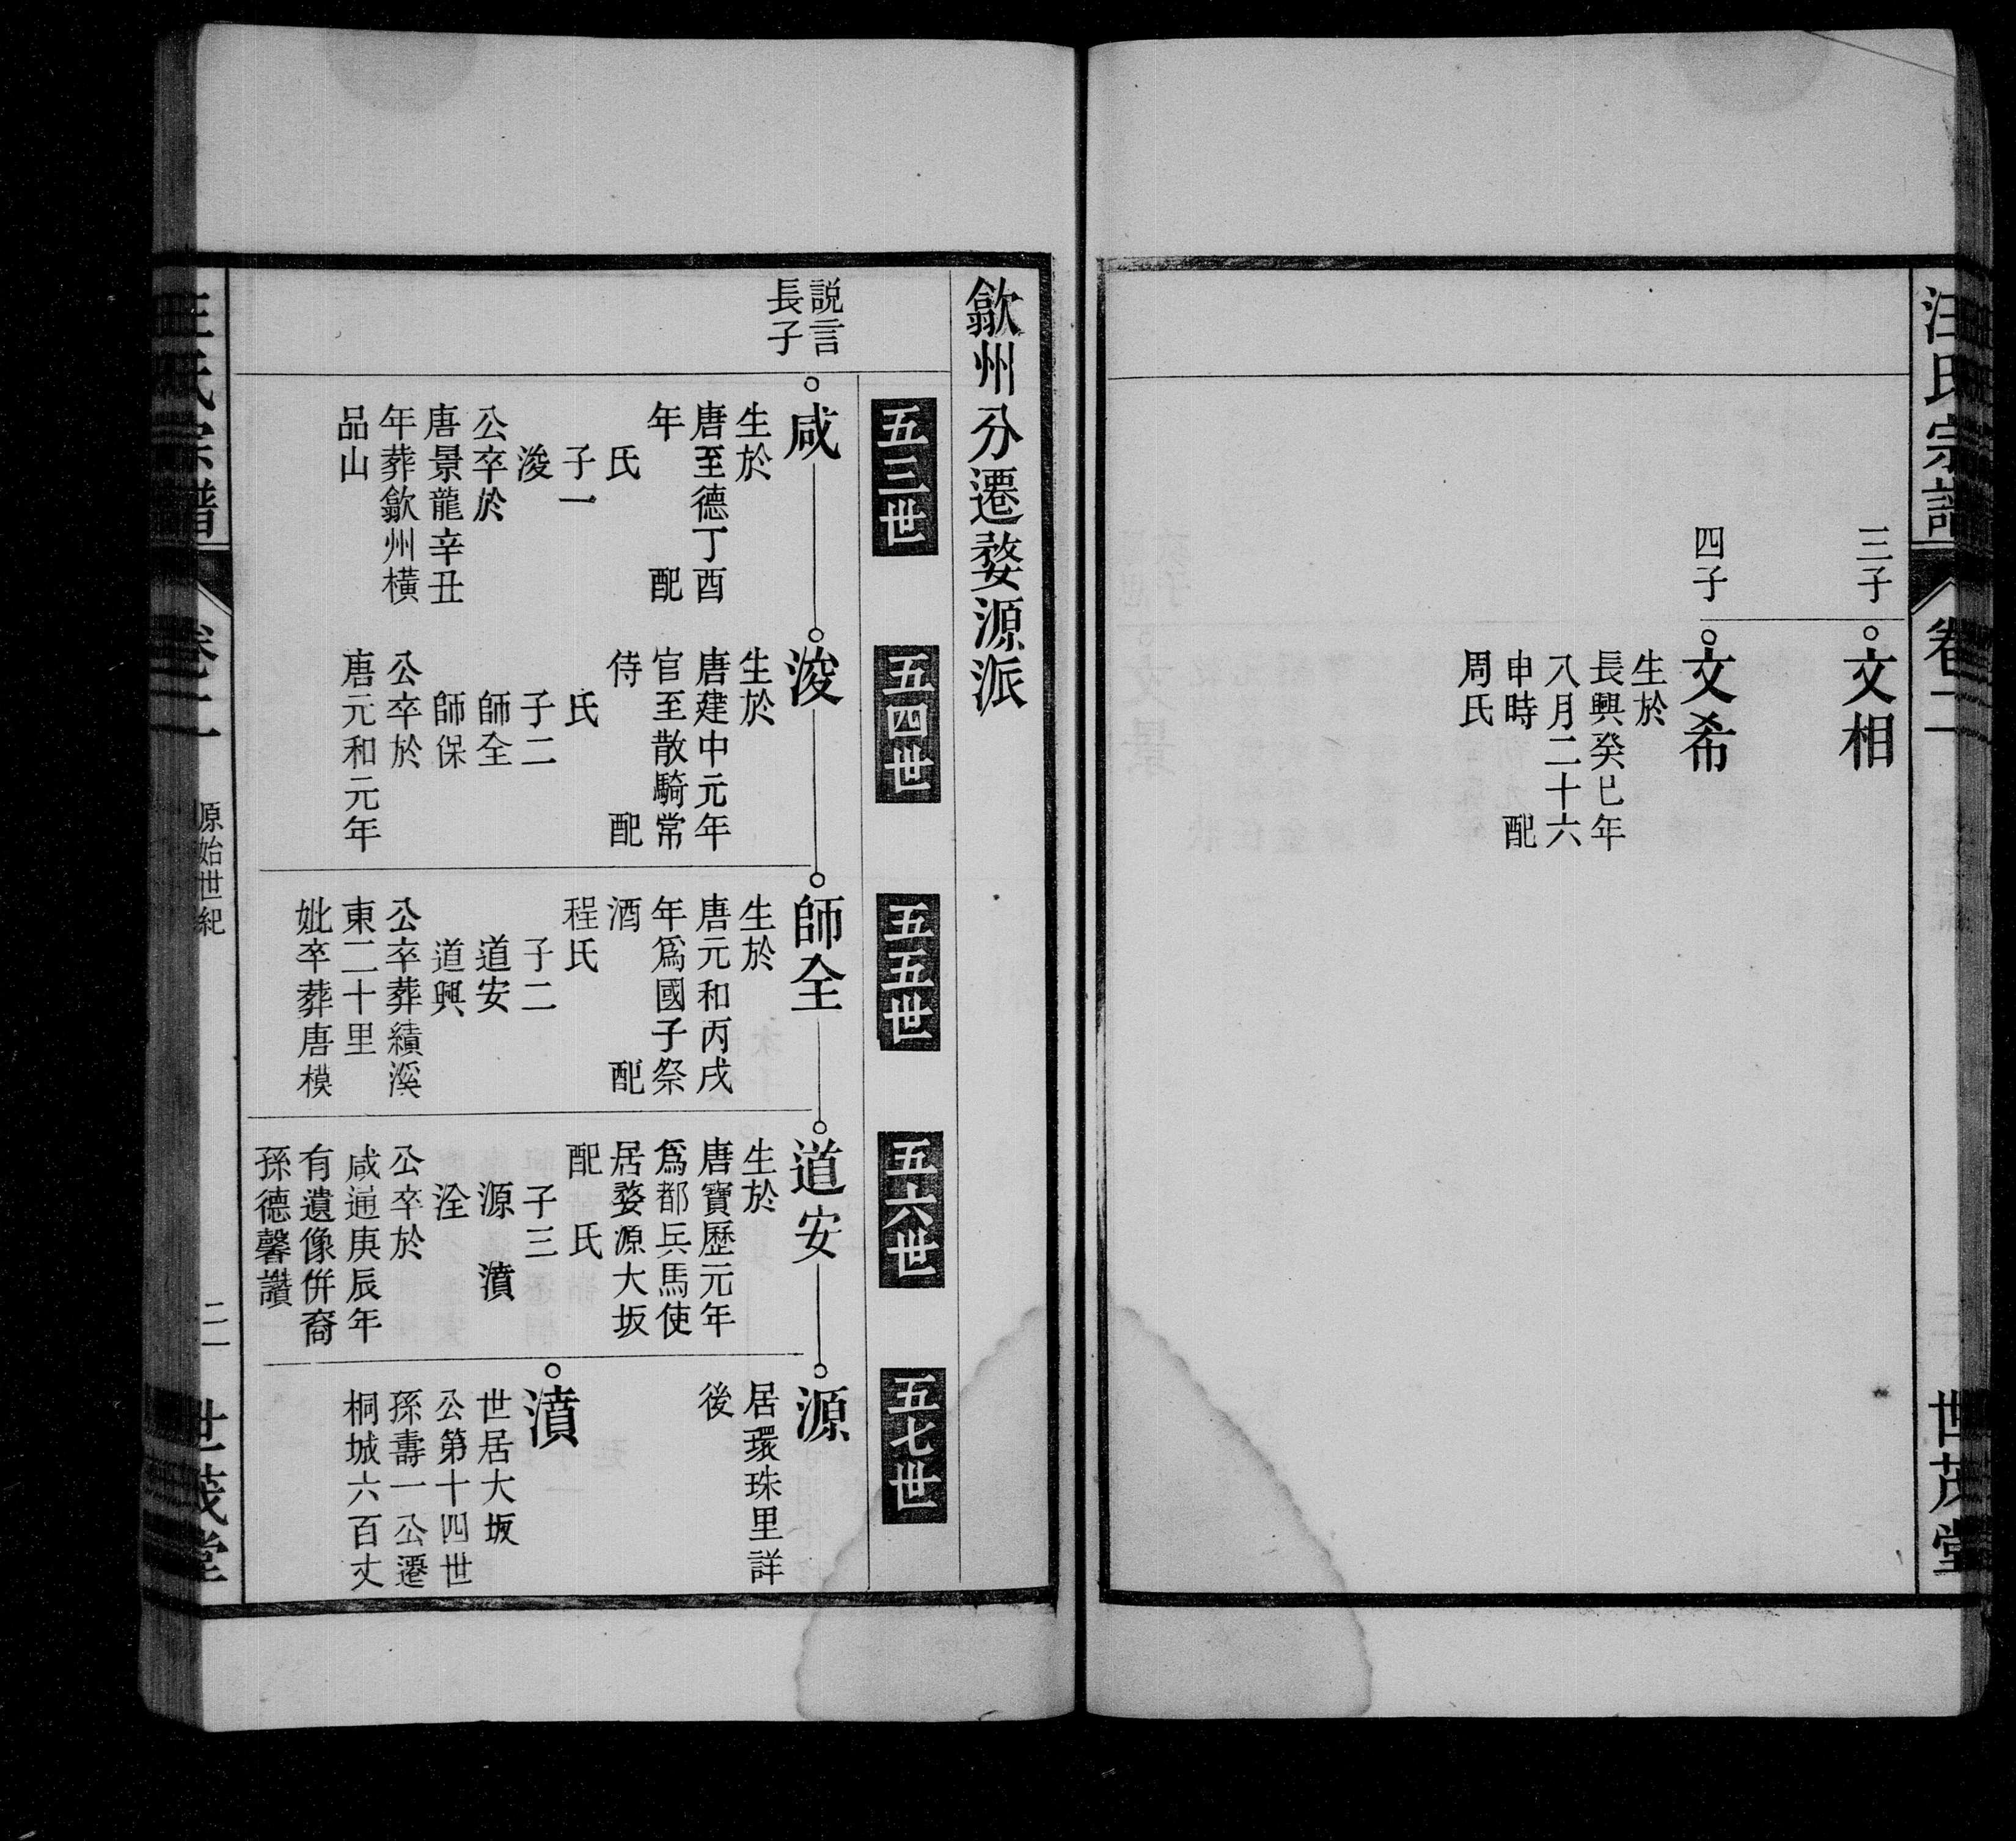 汪氏宗譜
卷二
世茂堂
三子
文相
四子
文希
生於
長興癸巳年
八月二十六
申時　配
周氏
歙州分遷婺源派
五三世
五四世
五五世
五六世
五七世
說言
長子
咸
生於
唐至德丁酉
年　配
氏
子一
浚
公卒於
唐景龍辛丑
年葬歙州橫
品山
浚
生於
唐建中元年
官至散騎常
侍　配
氏
子二
師全
師保
公卒於
唐元和元年
師全
生於
唐元和丙戌
年爲國子祭
酒　配
程氏
子二
道安
道興
公卒葬績溪
東二十里
妣卒葬唐模
道安
生於
唐寶歷元年
爲都兵馬使
居婺源大坂
配　氏
子三
源　濆
泩
公卒於
咸通庚辰年
有遺像併裔
孫德馨讚
源
居環珠里詳
後
濆
世居大坂
公第十四世
孫壽一公遷
桐城六百丈
汪氏宗譜
卷二
原始世紀
二一
世茂堂